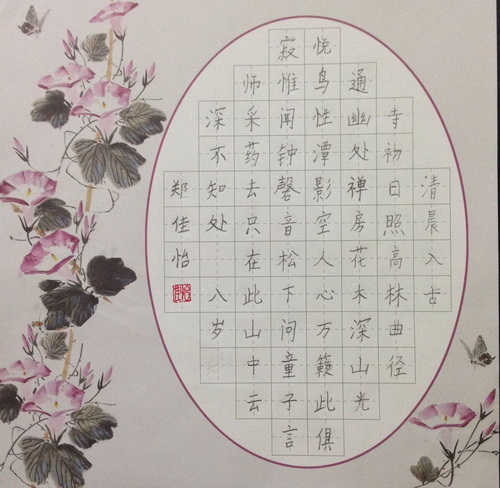 清晨入古
寺初日照高林曲径
通幽处禅房花木深山光
悦鸟性潭影空人心万籁此俱
寂惟闻钟磬音松下问童子言
师采药去只在此山中云
深不知处 八岁
郑佳怡